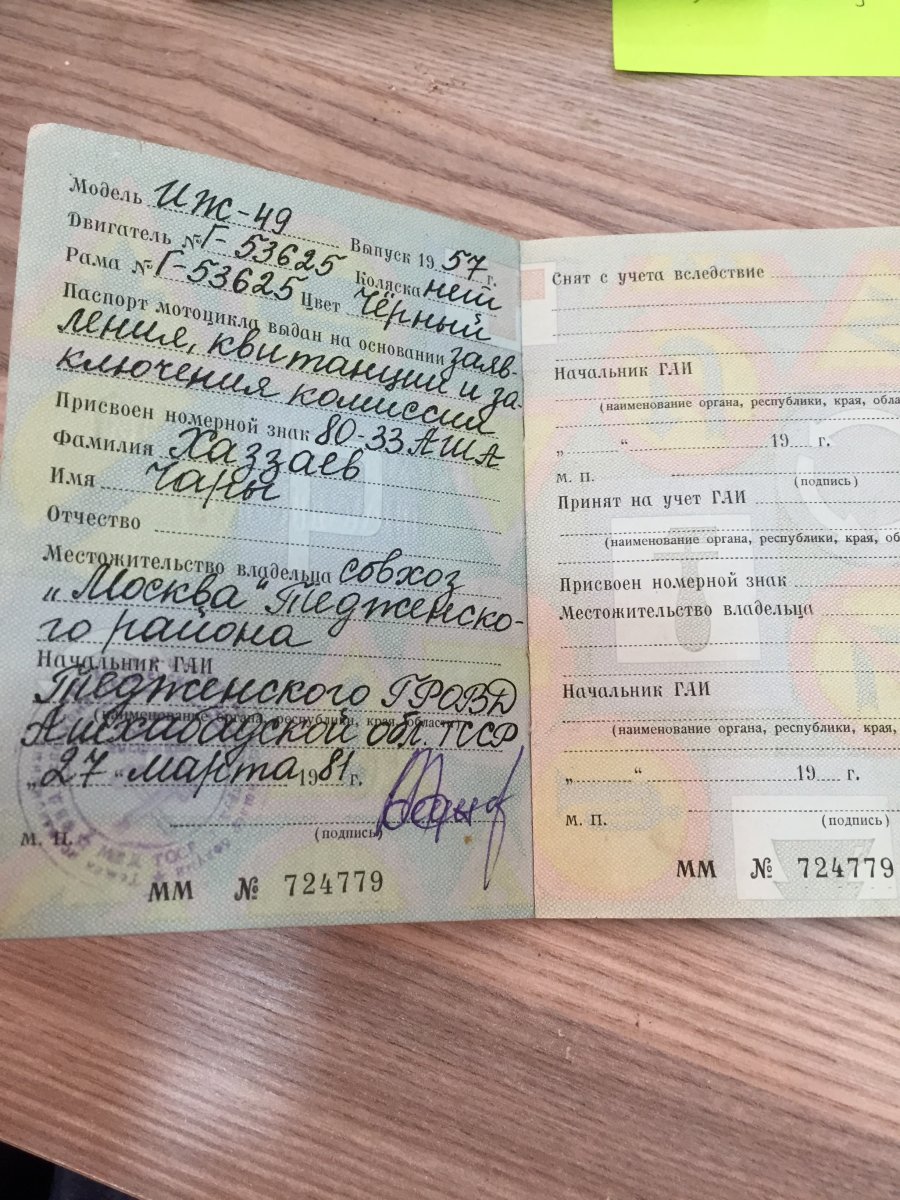 Модель ИЖ-49 Выпуск 1957 г.
Двигатель № Г-53625 Коляска нет
Рама № Г-53625 Цвет Чёрный
Паспорт мотоцикла выдан на основании заяв-
ления, квитанции и за-
ключения комиссия
Присвоен номерной знак 80-33 АША
Фамилия Хаззаев
Имя Чары
Отчество
Местожительство владельца совхоз
"Москва" Тедженско-
го района
Начальник ГАИ
Тедженского ГРОВД
(наименование органа, республики, края, области)
Ашхабадской обл. ТССР
„27“ марта 1981 г.
(подпись)
М. П.
ММ № 724779
Снят с учета вследствие
Начальник ГАИ
(наименование органа, республики, края, обла
„ “ 19 г.
М. П. (подпись)
Принят на учет ГАИ
(наименование органа, республики, края, об
Присвоен номерной знак
Местожительство владельца
Начальник ГАИ
(наименование органа, республики, края,
„ “ 19 г.
М. П. (подпись)
ММ № 724779